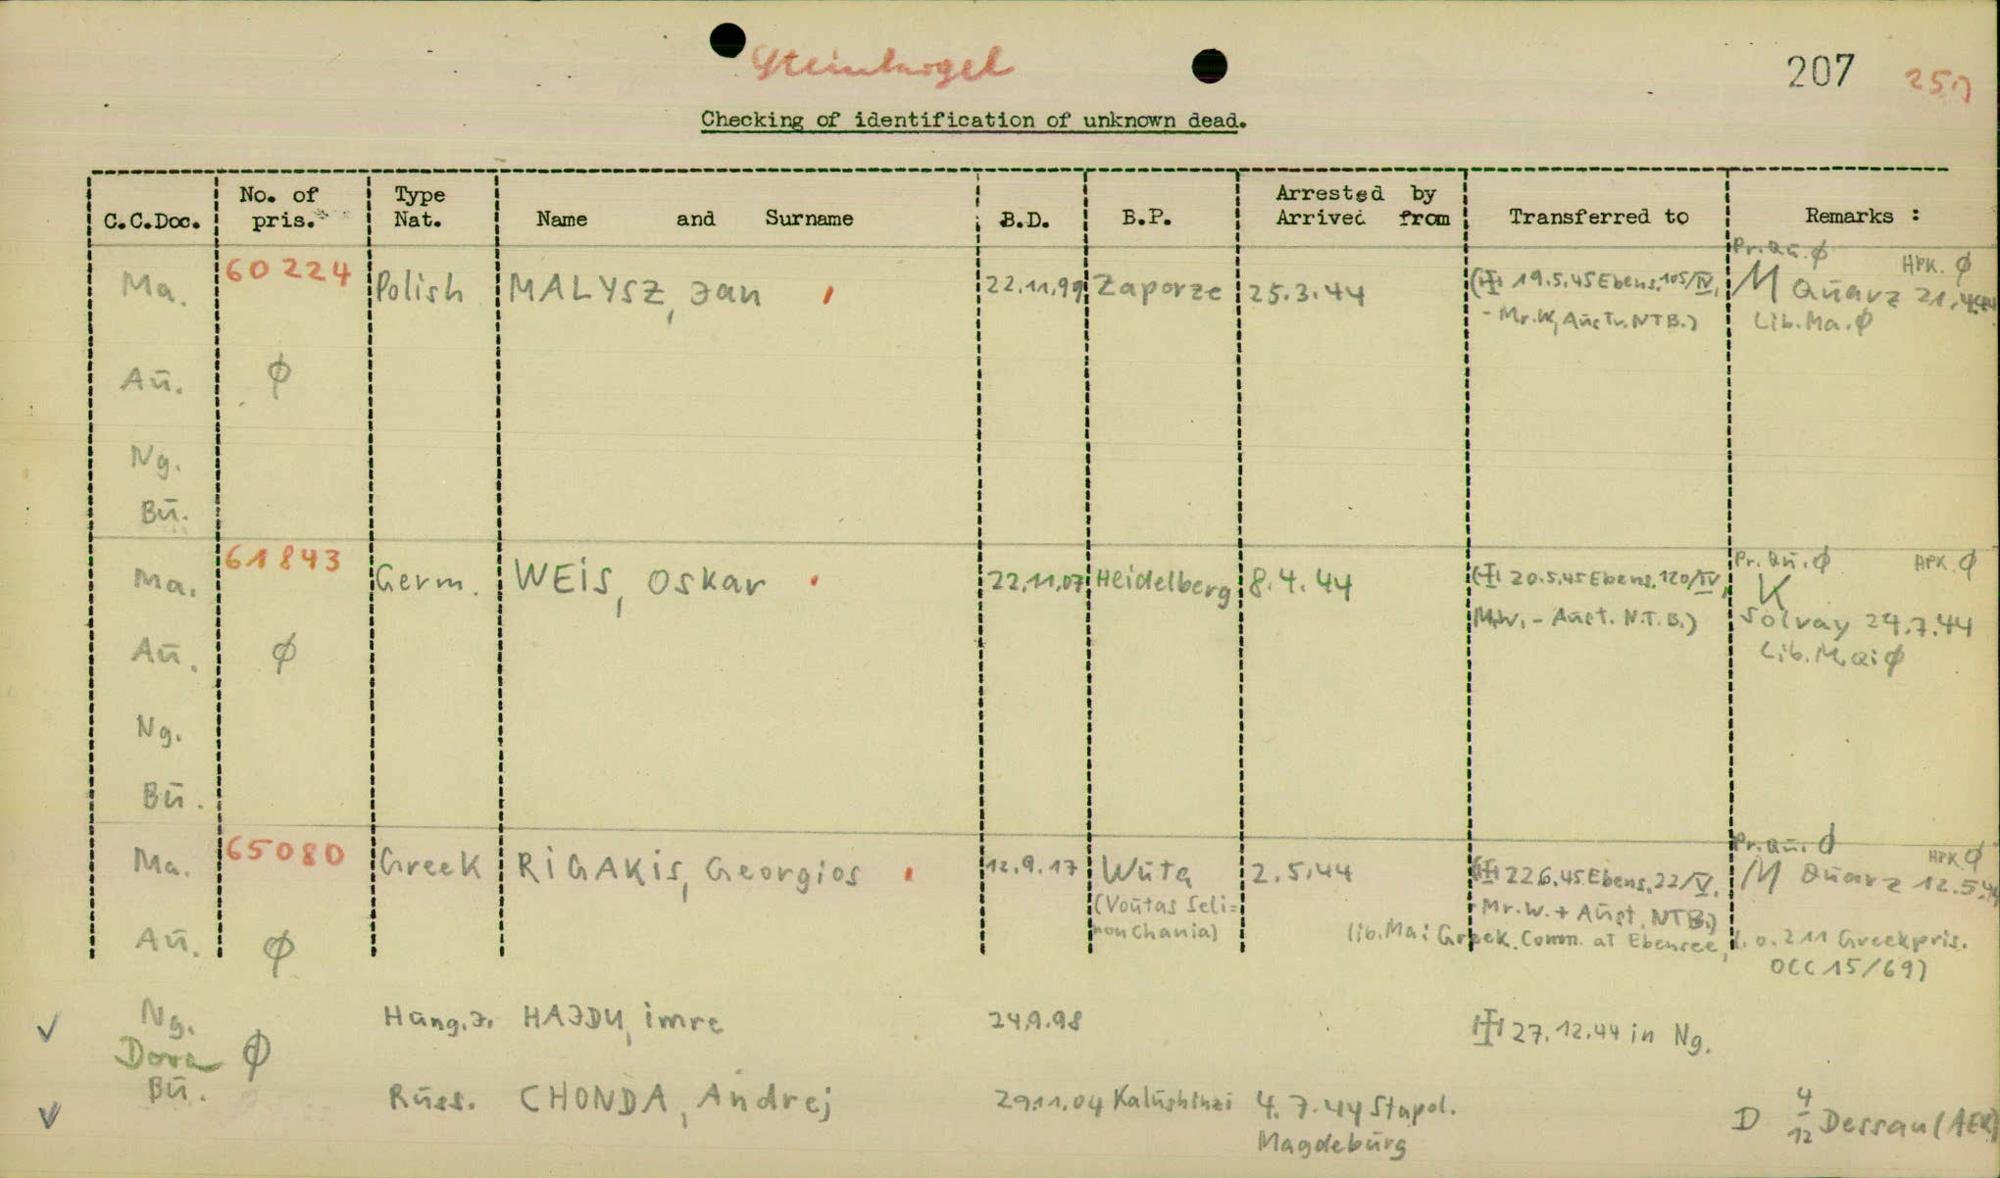 207
Checking of identification of unknown dead.
C.C.Doc. No. of pris. Type Nat. Name and Surname B.D. B.P. Arrested by Arrived from Transferred to Remarks :
Pr. Qū. ϕ HPK. ϕ
Ma. 60224 Polish MALYSZ, Jan 22.11.99 Zaporze 25.3.44 (卐 19.5.45 Ebens. 105/IV, M Quarz 21.4.44
- Mr.W, Aust. NTB.) Lib. Ma. ϕ
Aū. ϕ
Ng.
Bū.
Pr. Qū. ϕ HPK. ϕ
Ma. 61843 Germ. WEIS, Oskar 22.11.07 Heidelberg 8.4.44 († 20.5.45 Ebens. 120/IV, K
M.W. - Aust. N.T.B.) Solvay 24.7.44
Aū. ϕ Lib. M.ai ϕ
Ng.
Bū.
Pr. Qū. HPK ϕ
Ma. 65080 Greek RIGAKIS, Georgios 12.9.17 Wūta 2.5.44 († 22.6.45 Ebens. 22/V, M Quarz 12.5.44
(Voūtas Seli= - Mr.W. + Aūst. NTB.)
non Chania) lib. Ma: Greek Comm. at Ebensee, l.o. 211 Greek pris.
Aū. ϕ OCC 15/69)
Ng. Hūng.J. HAJDU, imre 24.9.98 † 27.12.44 in Ng.
Dora ϕ
Bū. Rūss. CHONDA, Andrej 29.11.04 4.7.44 Stapol. D 4/12 Dessau (AEK)
Magdebūrg